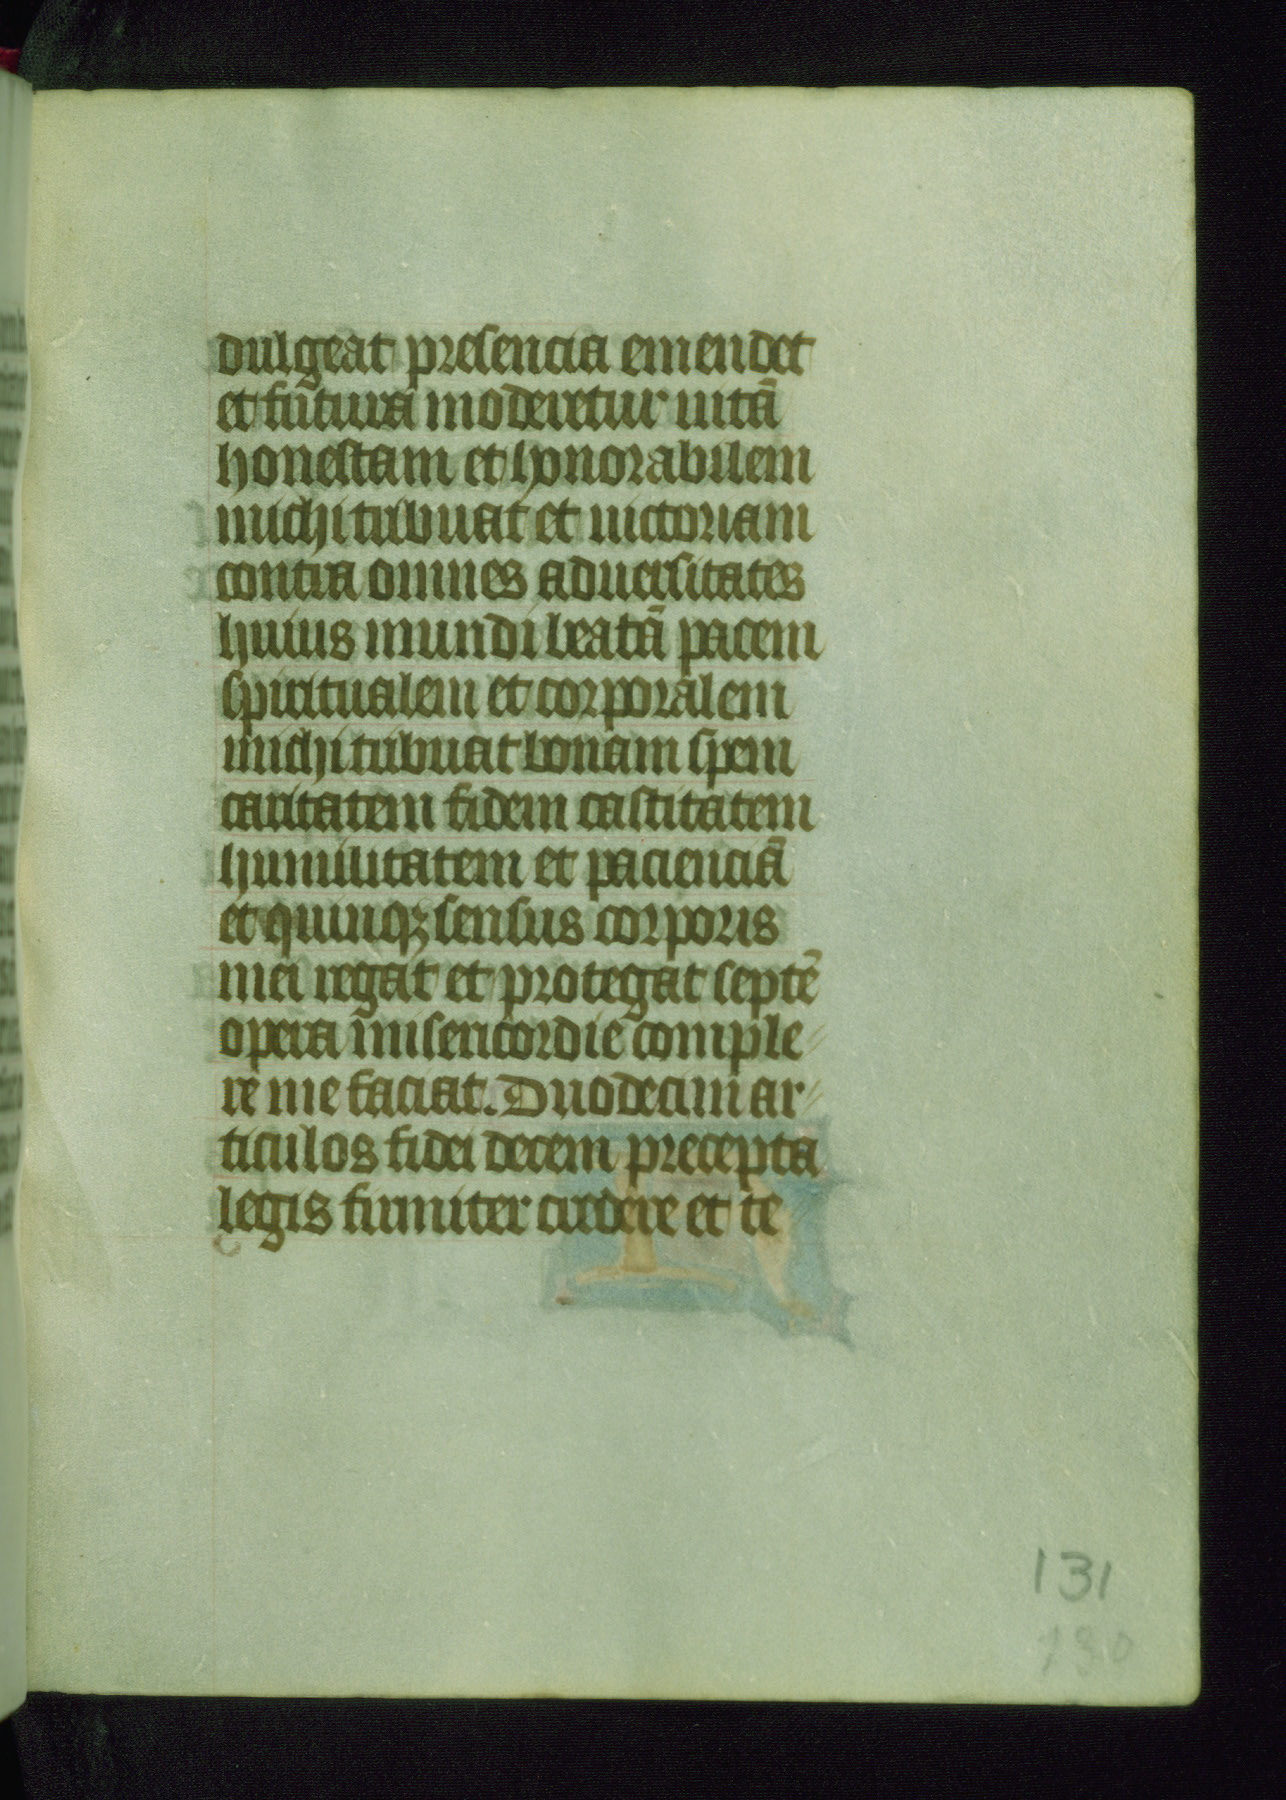 dulgeat presencia emendet
et futura moderetur uitã
honestam et honorabilem
michi tribuat et uictoriam
contra omnes aduersitates
huius mundi beatã pacem
spiritualem et corporalem
michi tribuat bonam spem
caritatem fidem castitatem
humilitatem et pacienciã
et quinqꝫ sensus corporis
mei regat et protegat septẽ
opera misericordie comple
re me faciat. Duodecim ar
ticulos fidei decem precepta
legis firmiter credere et te
131
130